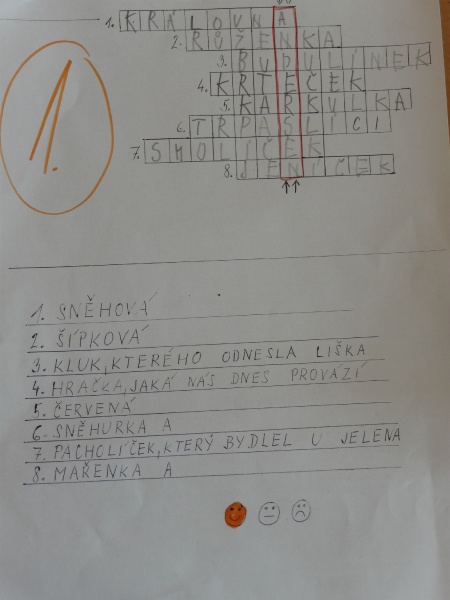 1. KRÁLOVNA
2. RŮŽENKA
3. BUDULÍNEK
4. KRTEČEK
5. KARKULKA
6. TRPASLÍCI
7. SMOLÍČEK
8. JENÍČEK
1.
1. SNĚHOVÁ
2. ŠÍPKOVÁ
3. KLUK, KTERÉHO ODNESLA LIŠKA
4. HRAČKA, JAKÁ NÁS DNES PROVÁZÍ
5. ČERVENÁ
6. SNĚHURKA A
7. PACHOLÍČEK, KTERÝ BYDLEL U JELENA
8. MAŘENKA A